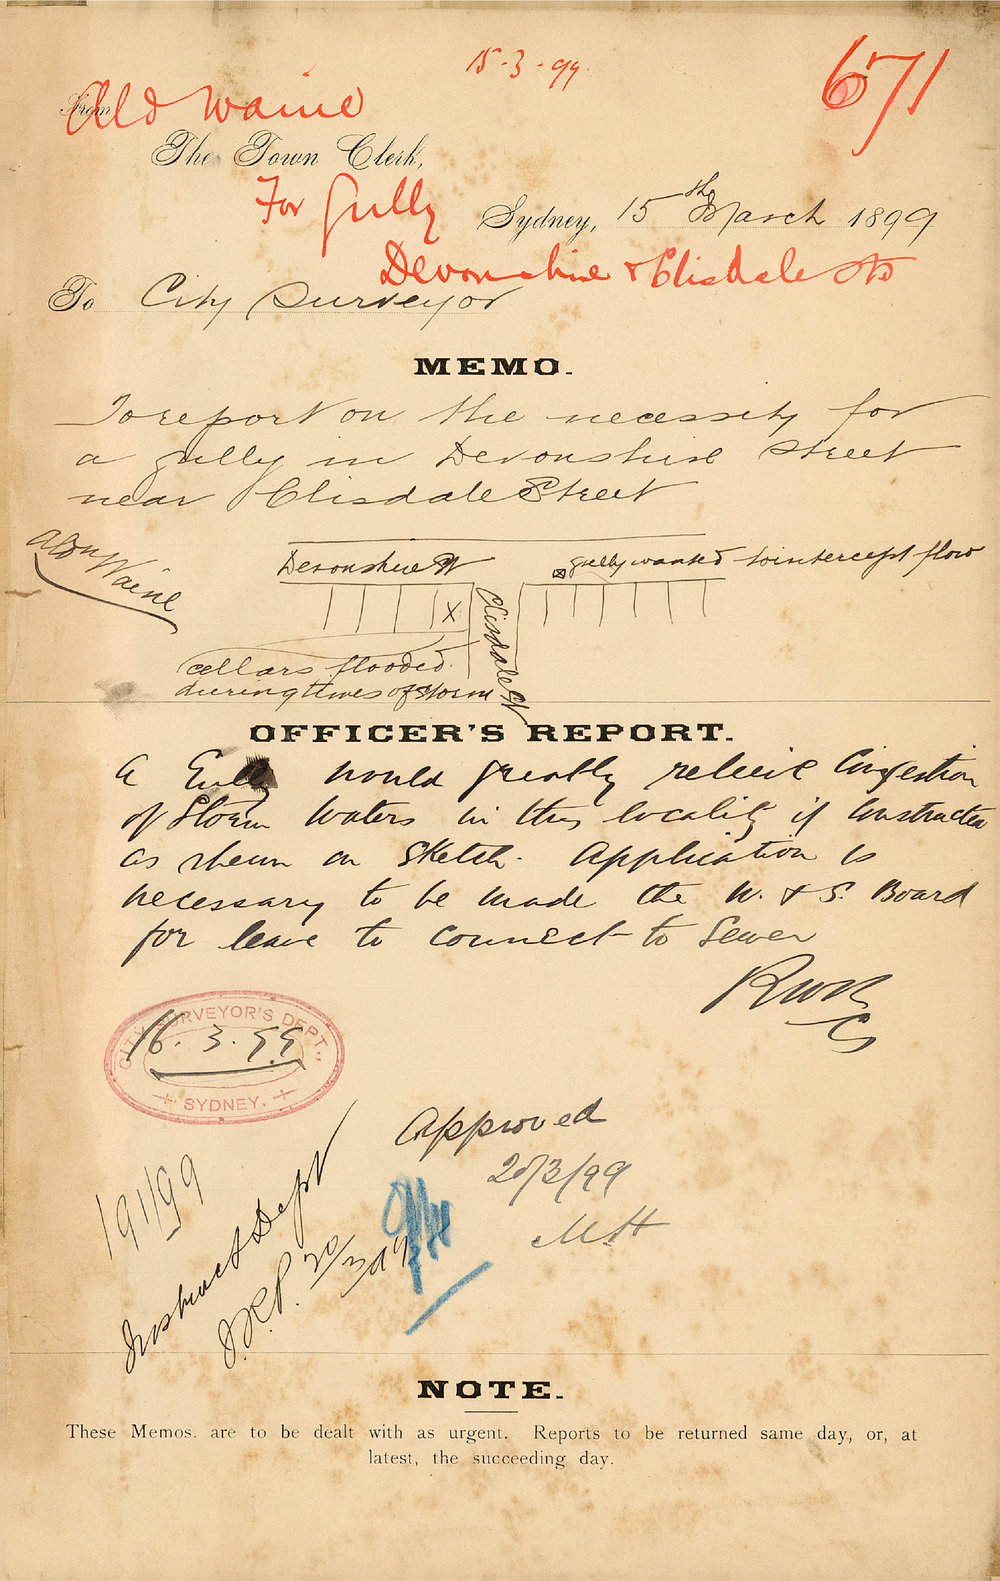 15-3-99
671
From
Ald Waine
The Town Clerk,
For Gully
Sydney, 15th March 1899
Devonshire & Clisdale Sts
To City Surveyor
MEMO.
To report on the necessity for
a gully in Devonshire Street
near Clisdale Street
Aldn Waine
Devonshire St
gully wanted to intercept flow
X
Clisdale St
cellars flooded
during times of storm
OFFICER'S REPORT.
A Gully would greatly relieve Congestion
of Storm Waters in this locality if constructed
as shewn on Sketch. Application is
necessary to be made the W. & S. Board
for leave to connect to Sewer
RWR
CS
CITY SURVEYOR'S DEPT.,
16.3.99
SYDNEY.
Approved
20/3/99
M.H
191/99
Instruct Dept
20/3/99
NOTE.
These Memos. are to be dealt with as urgent. Reports to be returned same day, or, at
latest, the succeeding day.